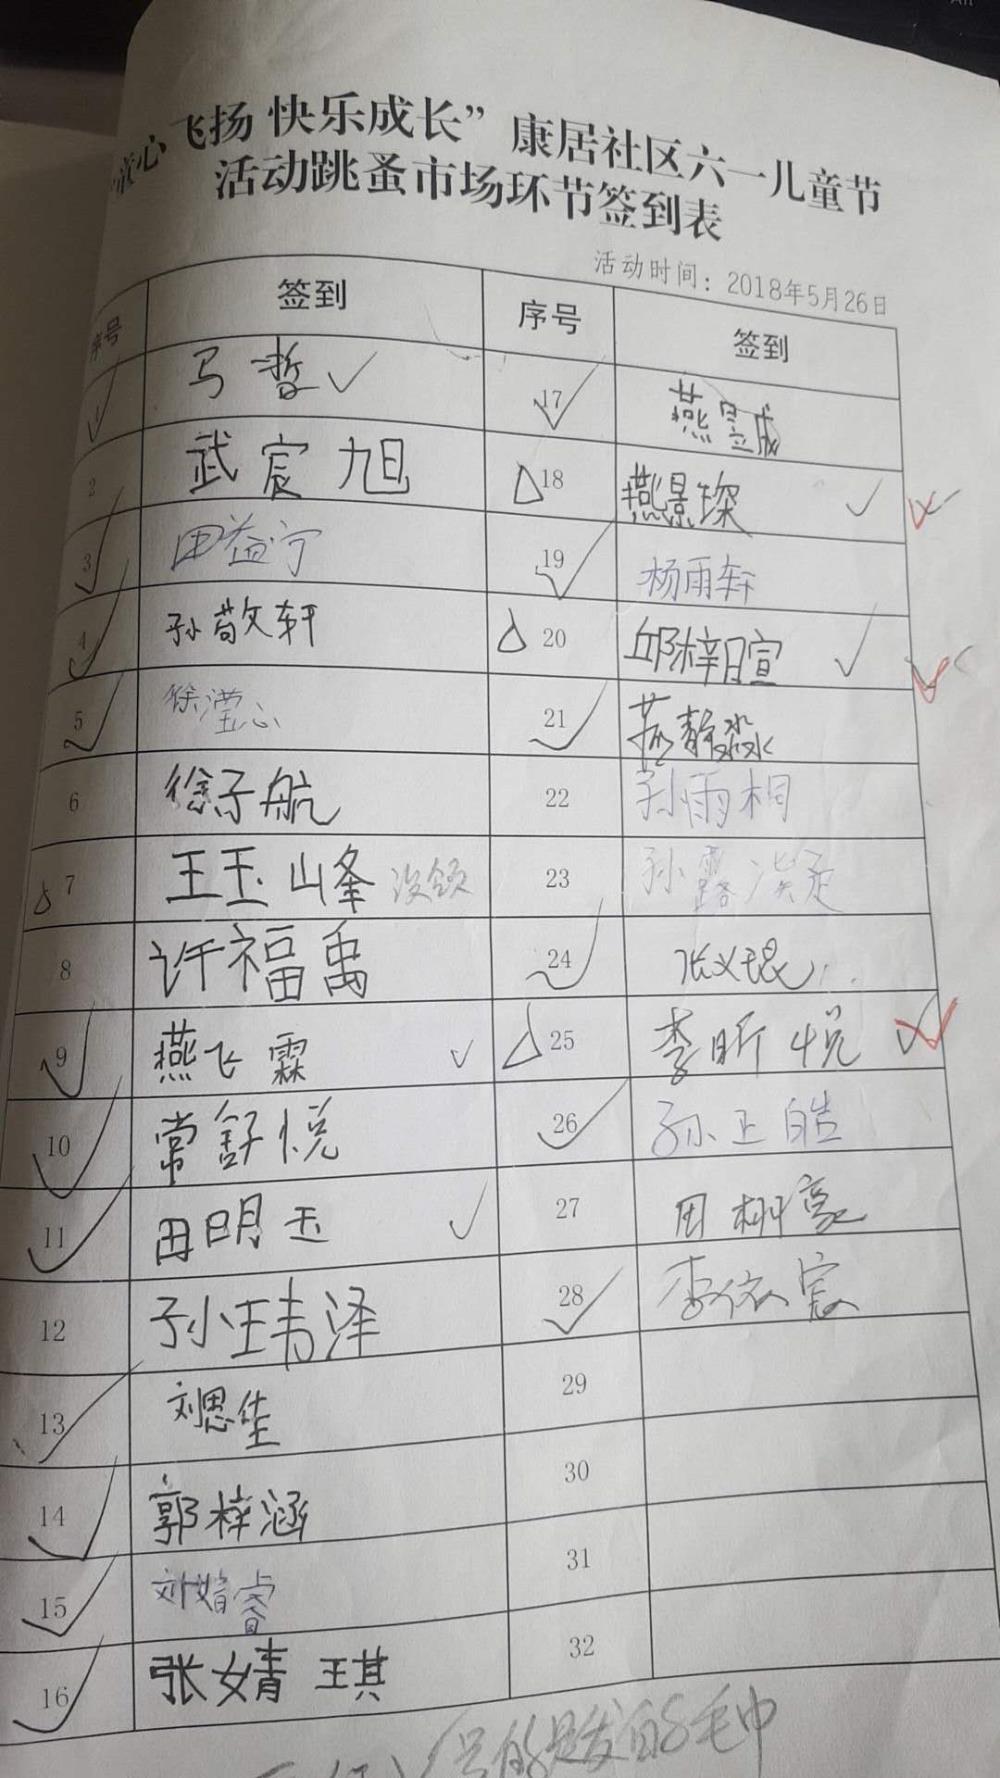 童心飞扬 快乐成长”康居社区六一儿童节
活动跳蚤市场环节签到表
活动时间：2018年5月26日
序号 签到 序号 签到
1 马哲 17 燕昱成
2 武宸旭 18 燕景琛
3 田益宁 19 杨雨轩
4 孙敬文轩 20 邱梓暄
5 徐滢心 21 燕静淼
6 徐子航 22 孙雨桐
7 王玉峰 没领 23 孙露淇
8 许福禹 24 张义琨
9 燕飞霖 25 李昕悦
10 常舒悦 26 孙正皓
11 田明玉 27 田栩豪
12 孙玮泽 28 李依宸
13 刘思笙 29
14 郭梓涵 30
15 刘婧睿 31
16 张婧琪 32
号的是发的毛巾